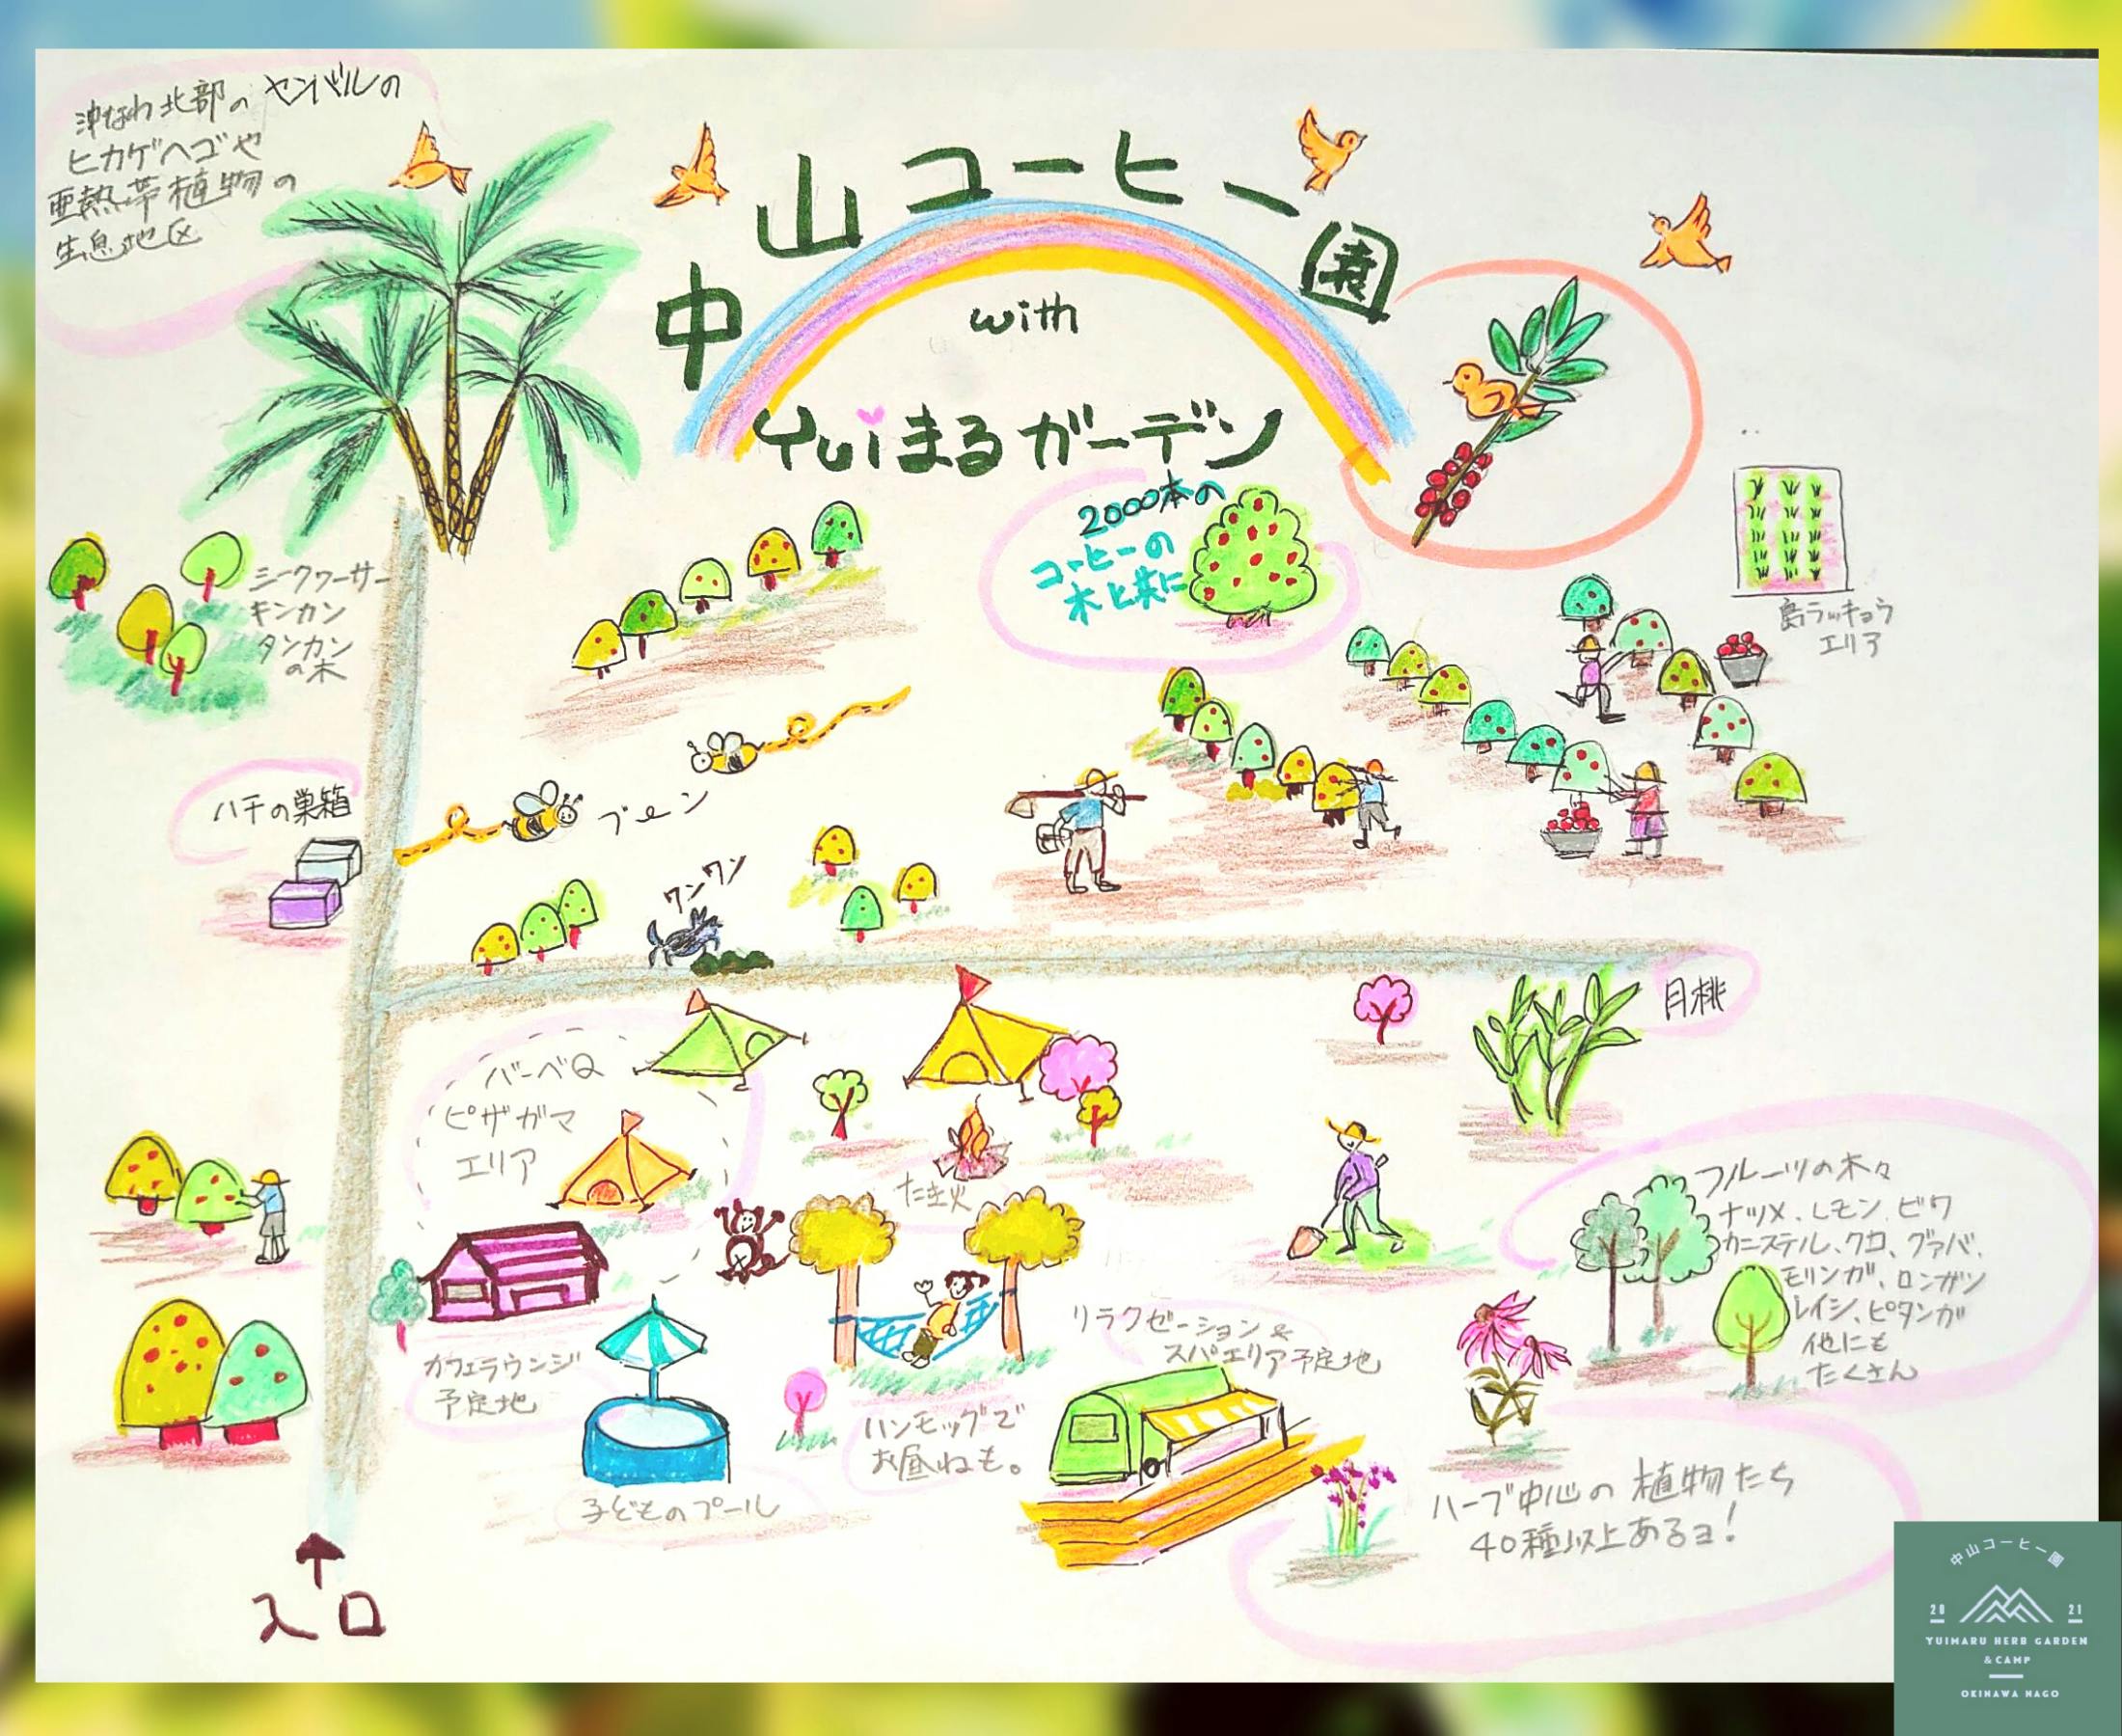 沖なわ北部のヤンバルの
ヒカゲヘゴや
亜熱帯植物の
生息地区
中山コーヒー園
with
Yuiまるガーデン
2000本の
コーヒーの
木と共に
島ラッキョウ
エリア
シークワーサー
キンカン
タンカン
の木
ハチの巣箱
ブーン
ワンワン
月桃
バーベQ
ピザガマ
エリア
たき火
フルーツの木々
ナツメ、レモン、ビワ
カニステル、クロ、グァバ、
モリンガ、ロンガン
レイシ、ピタンガ
他にも
たくさん
カフェラウンジ
予定地
リラクゼーション&
スパエリア予定地
ハンモッグで
お昼ねも。
子どものプール
ハーブ中心の植物たち
40種以上あるヨ!
入口
中山コーヒー園
20 21
YUIMARU HERB GARDEN
&CAMP
OKINAWA NAGO